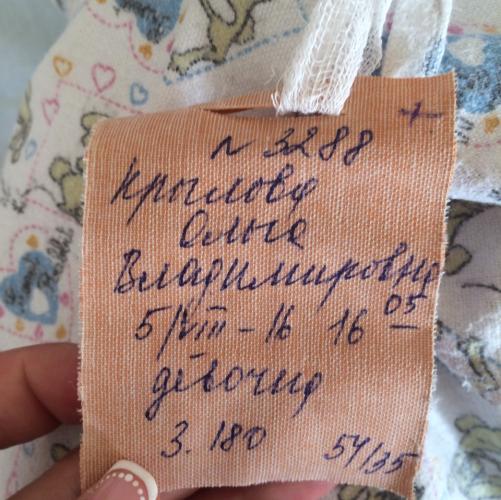 N 3288
Крылова
Ольга
Владимировна
5/VIII-16 16 05
девочка
3.180 54/35